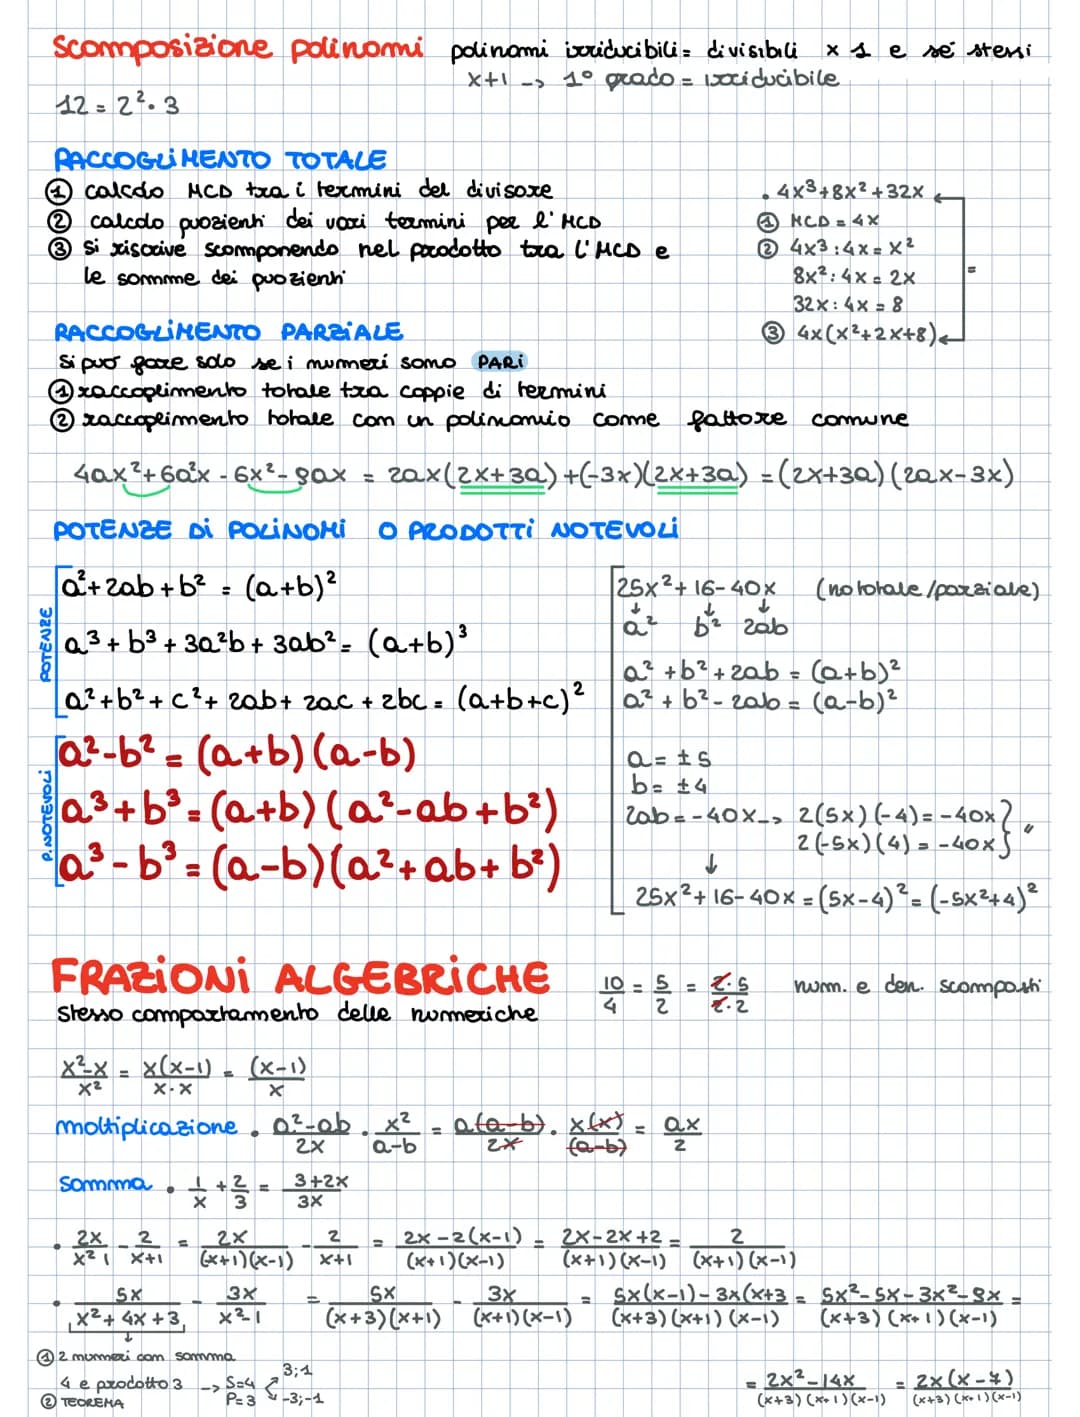 Scomposizione polinomi polinomi irriducibili = divisibili x 1 e se stessi
x+1 -> 1° grado = irriducibile
12 = 2² · 3
RACCOGLIMENTO TOTALE
① calcolo MCD tra i termini del divisore
② calcolo quozienti dei vari termini per l'MCD
③ Si riscrive scomponendo nel prodotto tra l'MCD e
le somme dei quozienti
. 4x³+8x²+32x
① MCD = 4x
② 4x³:4x = x²
8x²:4x = 2x
32x:4x = 8
③ 4x(x²+2x+8)
=
RACCOGLIMENTO PARZIALE
Si può fare solo se i numeri sono PARI
① raccoglimento totale tra coppie di termini
② raccoglimento totale con un polinomio come fattore comune
4ax²+6a²x - 6x² - 9ax = 2ax(2x+3a)+(-3x)(2x+3a) = (2x+3a)(2ax-3x)
POTENZE DI POLINOMI O PRODOTTI NOTEVOLI
POTENZE
a²+2ab+b² = (a+b)²
a³+b³+3a²b+3ab² = (a+b)³
a²+b²+c²+2ab+2ac+2bc = (a+b+c)²
P.NOTEVOLI
a²-b² = (a+b)(a-b)
a³+b³ = (a+b)(a²-ab+b²)
a³-b³ = (a-b)(a²+ab+b²)
25x²+16-40x (no totale/parziale)
↓ ↓ ↓
a² b² 2ab
a²+b²+2ab = (a+b)²
a²+b²-2ab = (a-b)²
a = ±5
b = ±4
2ab = -40x -> 2(5x)(-4) = -40x } "
2(-5x)(4) = -40x
↓
25x²+16-40x = (5x-4)² = (-5x²+4)²
FRAZIONI ALGEBRICHE
Stesso comportamento delle numeriche
10/4 = 5/2 = 2·5/2·2 num. e den. scomposti
x²-x/x² = x(x-1)/x·x = (x-1)/x
moltiplicazione . a²-ab/2x · x²/a-b = a(a-b)/2x · x(x)/(a-b) = ax/2
somma . 1/x + 2/3 = 3+2x/3x
. 2x/x² 1 - 2/x+1 = 2x/(x+1)(x-1) - 2/x+1 = 2x-2(x-1)/(x+1)(x-1) = 2x-2x+2/(x+1)(x-1) = 2/(x+1)(x-1)
. 5x/x²+4x+3 - 3x/x²-1 = 5x/(x+3)(x+1) - 3x/(x+1)(x-1) = 5x(x-1)-3x(x+3/(x+3)(x+1)(x-1) = 5x²-5x-3x²-9x/(x+3)(x+1)(x-1) =
↓
① 2 numeri con somma
4 e prodotto 3 -> S=4 P=3 3;1 -3;-1
② TEOREMA
= 2x²-14x/(x+3)(x+1)(x-1) = 2x(x-7)/(x+3)(x+1)(x-1)